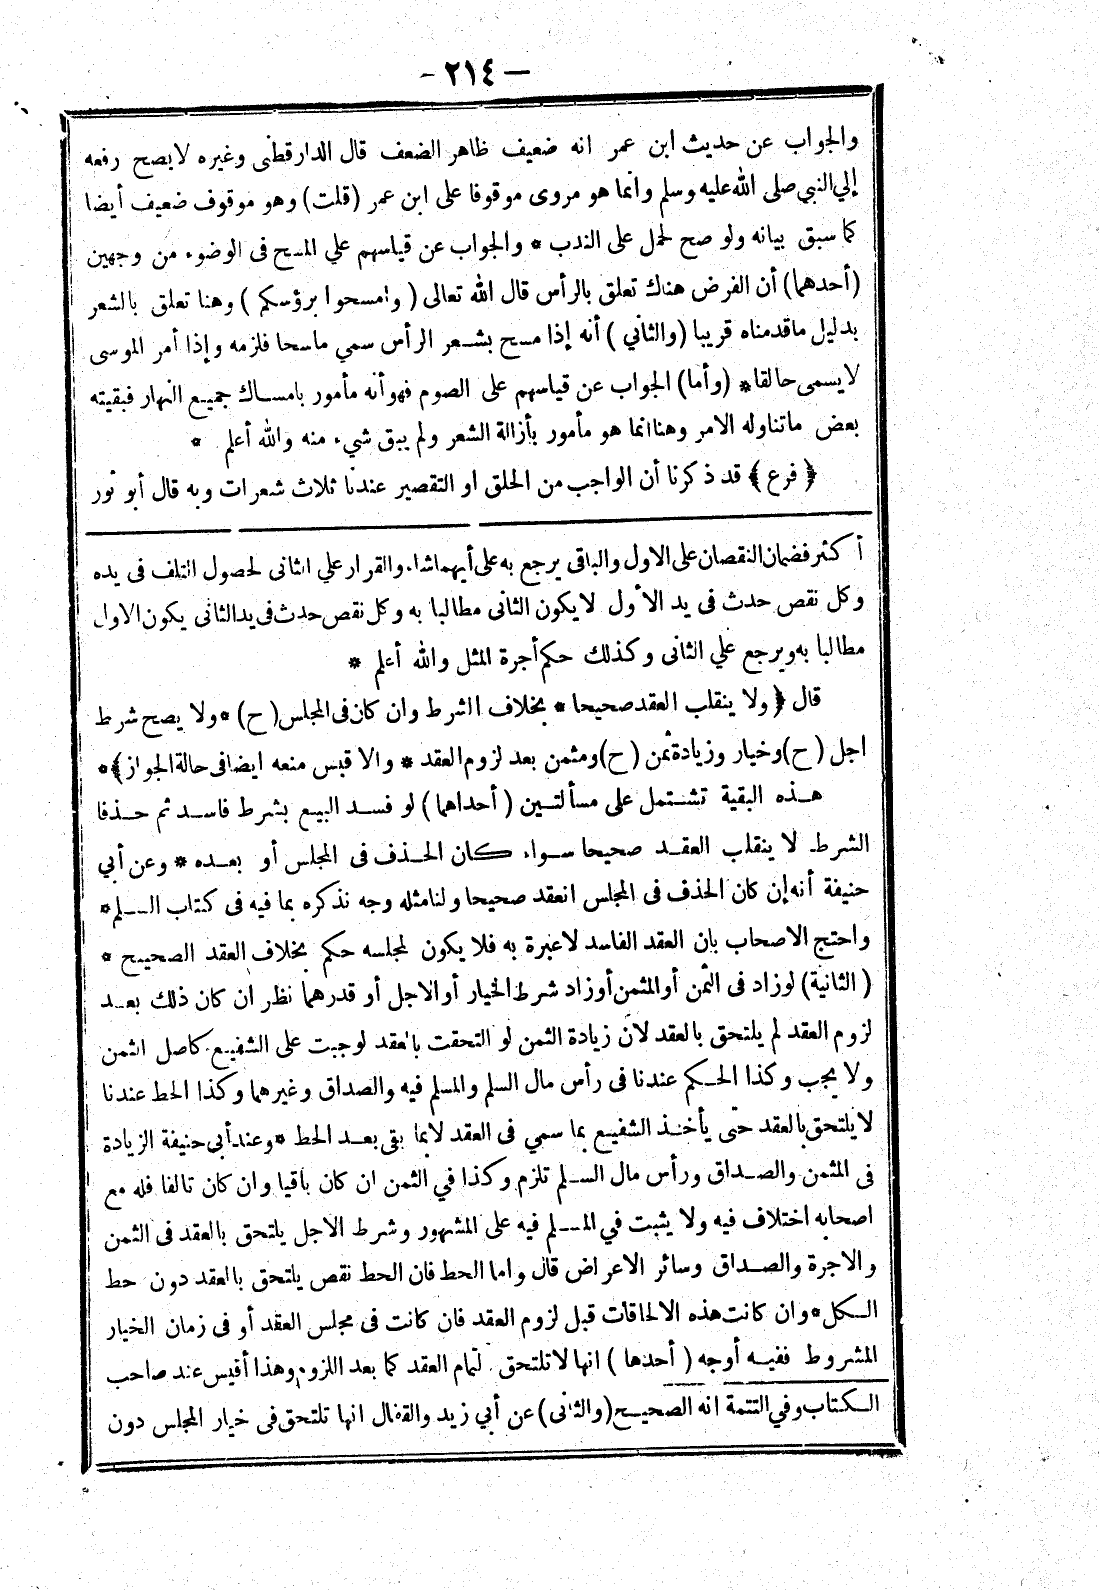 — ٢١٤ —
والجواب عن حديث ابن عمر انه ضعيف ظاهر الضعف قال الدارقطنى وغيره لايصح رفعه
إلي النبي صلى الله عليه وسلم وانما هو مروى موقوفا على ابن عمر (قلت) وهو موقوف ضعيف أيضا
كما سبق بيانه ولو صح لحمل على الندب * والجواب عن قياسهم علي المسح فى الوضوء من وجهين
(أحدهما) أن الفرض هناك تعلق بالرأس قال الله تعالى ( وامسحوا برؤسكم ) وهنا تعلق بالشعر
بدليل ماقدمناه قريبا (والثاني ) أنه إذا مسح بشعر الرأس سمي ماسحا فلزمه وإذا أمر الموسى
لايسمى حالقا* (وأما) الجواب عن قياسهم على الصوم فهو أنه مأمور بامساك جميع النهار فبقيته
بعض ماتناوله الامر وهنا انما هو مأمور بأزالة الشعر ولم يبق شيء منه والله أعلم *
﴿ فرع ﴾ قد ذكرنا أن الواجب من الحلق او التقصير عندنا ثلاث شعرات وبه قال أبو ثور
أكثر فضمان النقصان على الاول والباقى يرجع به على أيهما شاء والقرار علي الثانى لحصول التلف فى يده
وكل نقص حدث فى يد الأول لا يكون الثانى مطالبا به وكل نقص حدث فى يد الثانى يكون الاول
مطالبا به ويرجع علي الثانى وكذلك حكم أجرة المثل والله أعلم *
قال ﴿ ولا ينقلب العقد صحيحا * بخلاف الشرط وان كان فى المجلس (ح) * ولا يصح شرط
اجل (ح) وخيار وزيادة ثمن (ح) ومثمن بعد لزوم العقد * والاقيس منعه ايضا فى حالة الجواز ﴾ *
هذه البقية تشتمل على مسألتين ( أحداهما ) لو فسد البيع بشرط فاسد ثم حذفا
الشرط لا ينقلب العقد صحيحا سواء كان الحذف فى المجلس أو بعده * وعن أبي
حنيفة أنه إن كان الحذف فى المجلس انعقد صحيحا ولنا مثله وجه نذكره بما فيه فى كتاب السلم *
واحتج الاصحاب بان العقد الفاسد لاعبرة به فلا يكون لمجلسه حكم بخلاف العقد الصحيح *
( الثانية) لو زاد فى الثمن أو المثمن أو زاد شرط الخيار أو الاجل أو قدرهما نظر ان كان ذلك بعد
لزوم العقد لم يلتحق بالعقد لان زيادة الثمن لو التحقت بالعقد لوجبت على الشفيع كاصل الثمن
ولا يجب وكذا الحكم عندنا فى رأس مال السلم والمسلم فيه والصداق وغيرهما وكذا الحط عندنا
لايلتحق بالعقد حتى يأخذ الشفيع بما سمي فى العقد لابما بقى بعد الحط * وعند أبى حنيفة الزيادة
فى المثمن والصداق ورأس مال السلم تلزم وكذا في الثمن ان كان باقيا وان كان تالفا فله مع
اصحابه اختلاف فيه ولا يثبت في المسلم فيه على المشهور وشرط الاجل يلتحق بالعقد فى الثمن
والاجرة والصداق وسائر الاعراض قال واما الحط فان الحط نقص يلتحق بالعقد دون حط
الكل * وان كانت هذه الالحاقات قبل لزوم العقد فان كانت فى مجلس العقد أو فى زمان الخيار
المشروط ففيه أوجه ( أحدها ) انها لاتلتحق لتمام العقد كما بعد اللزوم وهذا أقيس عند صاحب
الكتاب وفي التتمة انه الصحيح (والثانى) عن أبي زيد والقفال انها تلتحق فى خيار المجلس دون